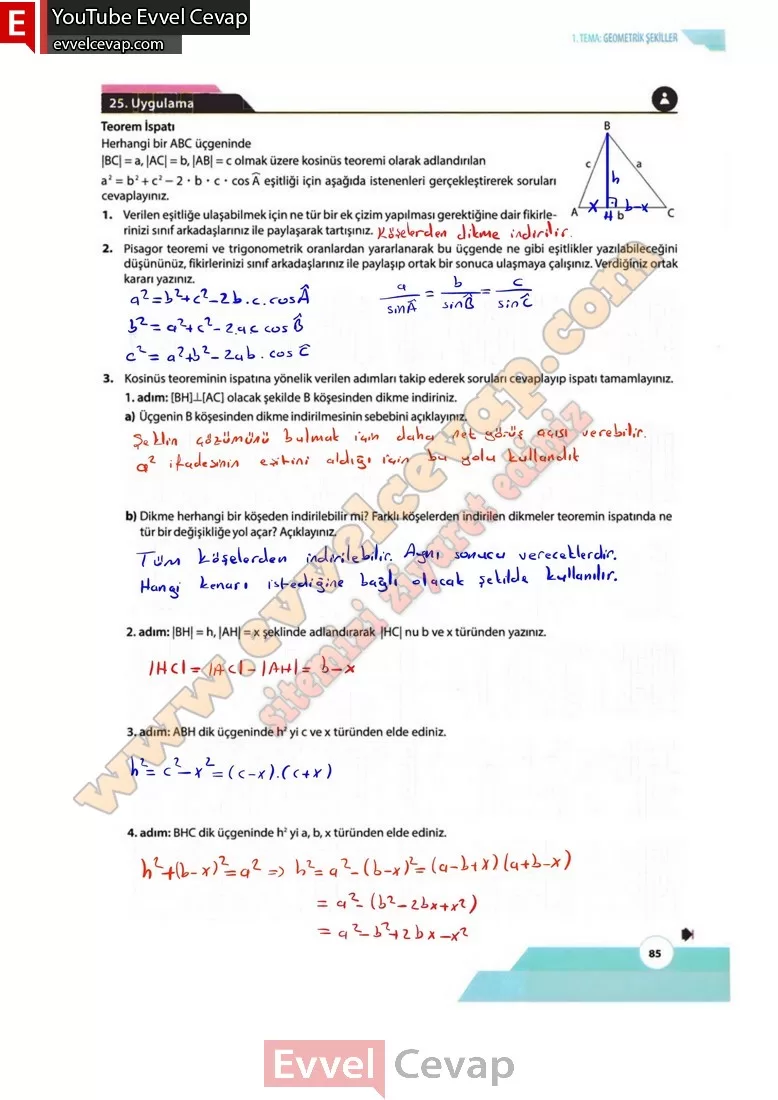 E YouTube Evvel Cevap
evvelcevap.com
1. TEMA: GEOMETRİK ŞEKİLLER
25. Uygulama
Teorem İspatı
Herhangi bir ABC üçgeninde
|BC| = a, |AC| = b, |AB| = c olmak üzere kosinüs teoremi olarak adlandırılan
a² = b² + c² − 2 · b · c · cos Â eşitliği için aşağıda istenenleri gerçekleştirerek soruları
cevaplayınız.
B
c a
h
x b-x
A H b C
1. Verilen eşitliğe ulaşabilmek için ne tür bir ek çizim yapılması gerektiğine dair fikirle-
rinizi sınıf arkadaşlarınız ile paylaşarak tartışınız. Köşelerden dikme indirilir.
2. Pisagor teoremi ve trigonometrik oranlardan yararlanarak bu üçgende ne gibi eşitlikler yazılabileceğini
düşününüz, fikirlerinizi sınıf arkadaşlarınız ile paylaşıp ortak bir sonuca ulaşmaya çalışınız. Verdiğiniz ortak
kararı yazınız.
a²=b²+c²-2b.c.cosÂ
b²= a²+c²-2.a.c cos B̂
c²= a²+b²-2ab.cos Ĉ
a/sinÂ = b/sinB̂ = c/sinĈ
3. Kosinüs teoreminin ispatına yönelik verilen adımları takip ederek soruları cevaplayıp ispatı tamamlayınız.
1. adım: [BH]⊥[AC] olacak şekilde B köşesinden dikme indiriniz.
a) Üçgenin B köşesinden dikme indirilmesinin sebebini açıklayınız.
Şeklin çözümünü bulmak için daha net görüş açısı verebilir.
a² ifadesinin eşitini aldığı için bu yolu kullandık
b) Dikme herhangi bir köşeden indirilebilir mi? Farklı köşelerden indirilen dikmeler teoremin ispatında ne
tür bir değişikliğe yol açar? Açıklayınız.
Tüm köşelerden indirilebilir. Aynı sonucu vereceklerdir.
Hangi kenarı istediğine bağlı olacak şekilde kullanılır.
2. adım: |BH| = h, |AH| = x şeklinde adlandırarak |HC| nu b ve x türünden yazınız.
|HC| = |AC| - |AH| = b-x
3. adım: ABH dik üçgeninde h² yi c ve x türünden elde ediniz.
h²= c²-x²=(c-x).(c+x)
4. adım: BHC dik üçgeninde h² yi a, b, x türünden elde ediniz.
h²+(b-x)²=a² => h²= a²-(b-x)²=(a-b+x)(a+b-x)
= a²-(b²-2bx+x²)
= a²-b²+2bx-x²
85
www.evvelcevap.com
sitemizi ziyaret ediniz
Evvel Cevap